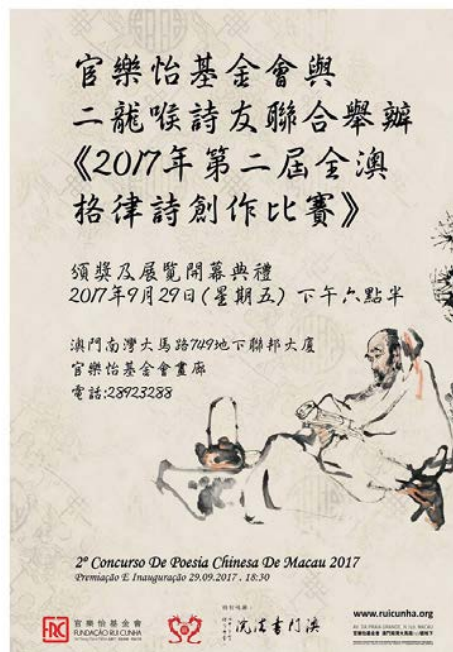 官樂怡基金會與
二龍喉詩友聯合舉辦
《2017年第二屆全澳
格律詩創作比賽》
頒獎及展覽開幕典禮
2017年9月29日(星期五) 下午六點半
澳門南灣大馬路749地下聯邦大廈
官樂怡基金會畫廊
電話:28923288
2º Concurso De Poesia Chinesa De Macau 2017
Premiação E Inauguração 29.09.2017 . 18:30
特別鳴謝:
FRC
官樂怡基金會
FUNDAÇÃO RUI CUNHA
澳門書法院
www.ruicunha.org